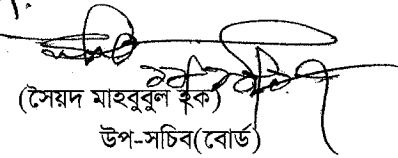 (সৈয়দ মাহবুবুল হক)
উপ-সচিব(বোর্ড)